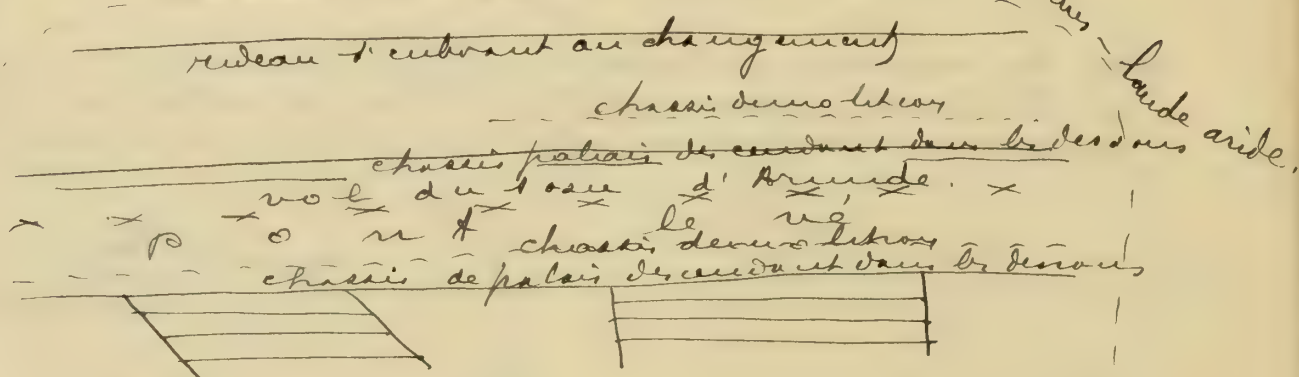 rideau s'enlevant au changement
chassis demolition
Lande aride.
chassis palais descendant dans les dessous
vol du 1 d'Armide.
pont levé
chassis demolition
chassis de palais descendant dans les dessous